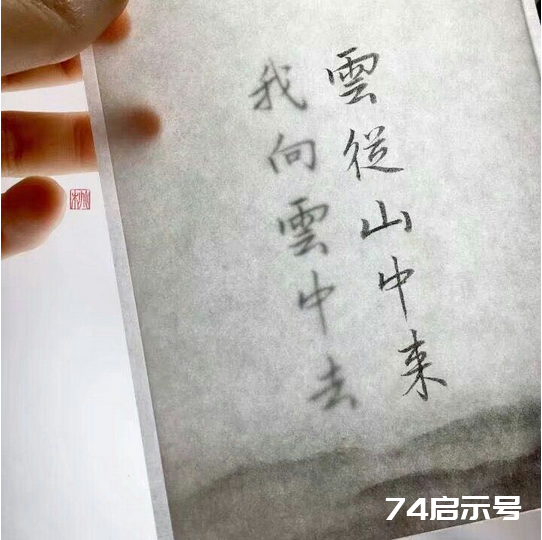 雲從山中来
我向雲中去
74启示号